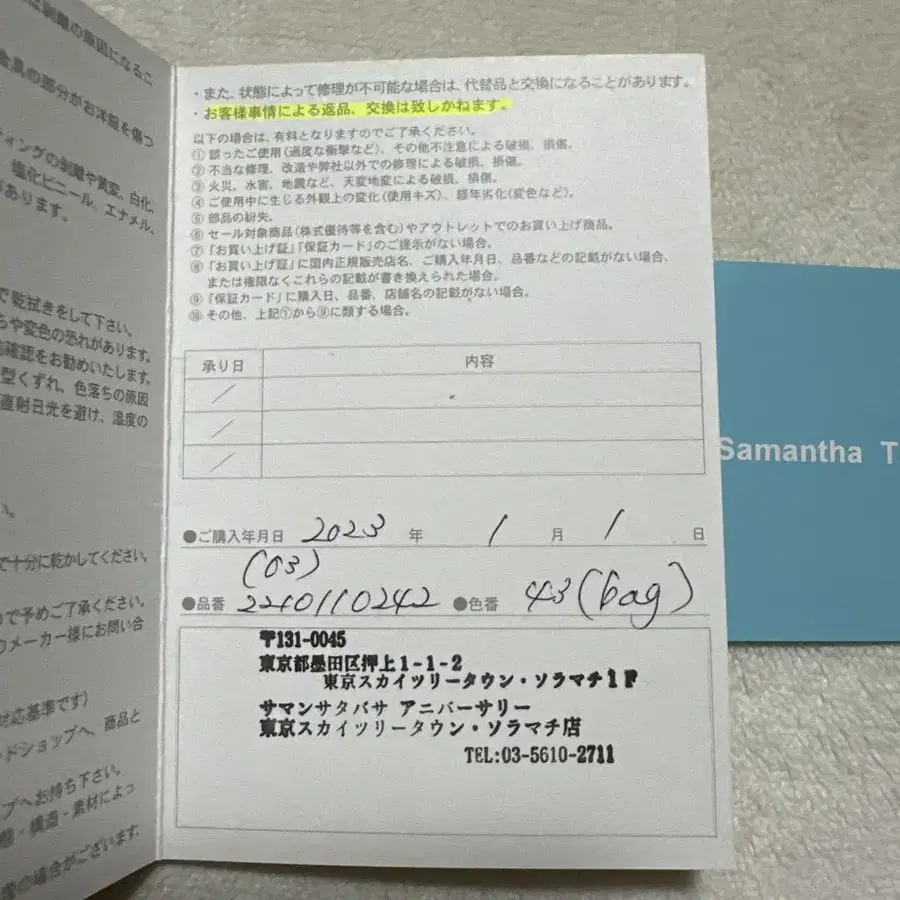 は剥離の原因になるこ
金具の部分がお洋服を傷つ
ィングの剥離や黄変、白化、
塩化ビニール、エナメル、
があります。
で乾拭きをして下さい。
ちや変色の恐れがあります。
確認をお勧めいたします。
型くずれ、色落ちの原因
直射日光を避け、温度の
で十分に乾かしてください。
ので予めご了承ください。
のメーカー様にお問い合
対応基準です)
ドショップへ、商品と
プへお持ち下さい。
態・構造・素材によっ
の場合がございます。
・また、状態によって修理が不可能な場合は、代替品と交換になることがあります。
・お客様事情による返品、交換は致しかねます。
以下の場合は、有料となりますのでご了承ください。
① 誤ったご使用(過度な衝撃など)、その他不注意による破損、損傷。
② 不当な修理、改造や弊社以外での修理による破損、損傷。
③ 火災、水害、地震など、天変地変による破損、損傷。
④ ご使用中に生じる外観上の変化(使用キズ)、経年劣化(変色など)。
⑤ 部品の紛失。
⑥ セール対象商品(株式優待等を含む)やアウトレットでのお買い上げ商品。
⑦ 「お買い上げ証」「保証カード」のご提示がない場合。
⑧ 「お買い上げ証」に国内正規販売店名、ご購入年月日、品番などの記載がない場合、
または権限なくこれらの記載が書き換えられた場合。
⑨ 「保証カード」に購入日、品番、店舗名の記載がない場合。
⑩ その他、上記①から⑨に類する場合。
承り日 内容
／
／
／
●ご購入年月日 2023 年 1 月 1 日
(03)
●品番 2210110242 ●色番 43(bag)
〒131-0045
東京都墨田区押上1-1-2
東京スカイツリータウン・ソラマチ1F
サマンサタバサ アニバーサリー
東京スカイツリータウン・ソラマチ店
TEL:03-5610-2711
Samantha T